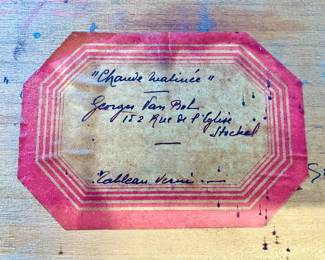 "Chaude Matinée"
Georges Van
152 Rue de l'Eglise
Stockel
Tableau Verni